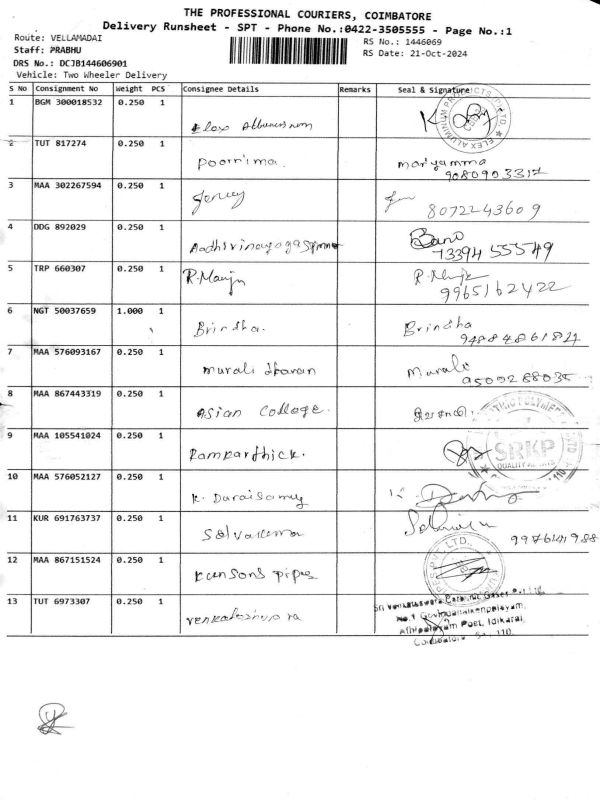 THE PROFESSIONAL COURIERS, COIMBATORE
Delivery Runsheet - SPT - Phone No.:0422-3505555 - Page No.:1
Route: VELLAMADAI
Staff: PRABHU
DRS No.: DCJB144606901
Vehicle: Two Wheeler Delivery
RS No.: 1446069
RS Date: 21-Oct-2024
S No Consignment No Weight PCS Consignee Details Remarks Seal & Signature
1 BGM 300018532 0.250 1
2 TUT 817274 0.250 1 Poornima. mariyamma
9080903317
3 MAA 302267594 0.250 1
8072243609
4 DDG 892029 0.250 1 Bano
73394 55549
5 TRP 660307 0.250 1 R. Manju R. Manju
9965162422
6 NGT 50037659 1.000 1 Brindha. Brindha
7 MAA 576093167 0.250 1 murali dharan Murali
9509288035
8 MAA 867443319 0.250 1 Asian College.
9 MAA 105541024 0.250 1 Ramkarthick.
SRKP
10 MAA 576052127 0.250 1 K. Duraisamy
11 KUR 691763737 0.250 1 Selvakumar
12 MAA 867151524 0.250 1 Kunsons pipes
13 TUT 6973307 0.250 1